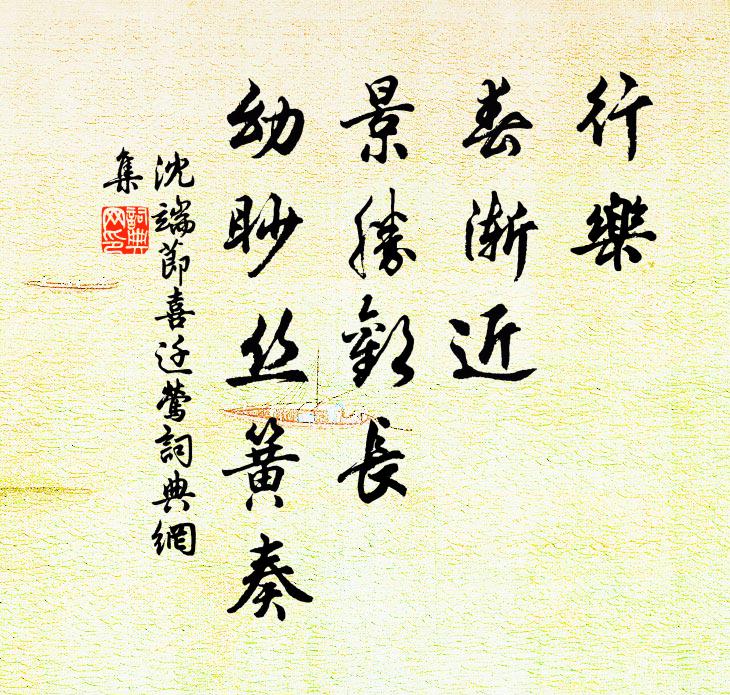 行樂
春漸近
景勝歡長
幼眇丝簧奏
沈端節喜迁鶯詞典網
集
詞典
网印